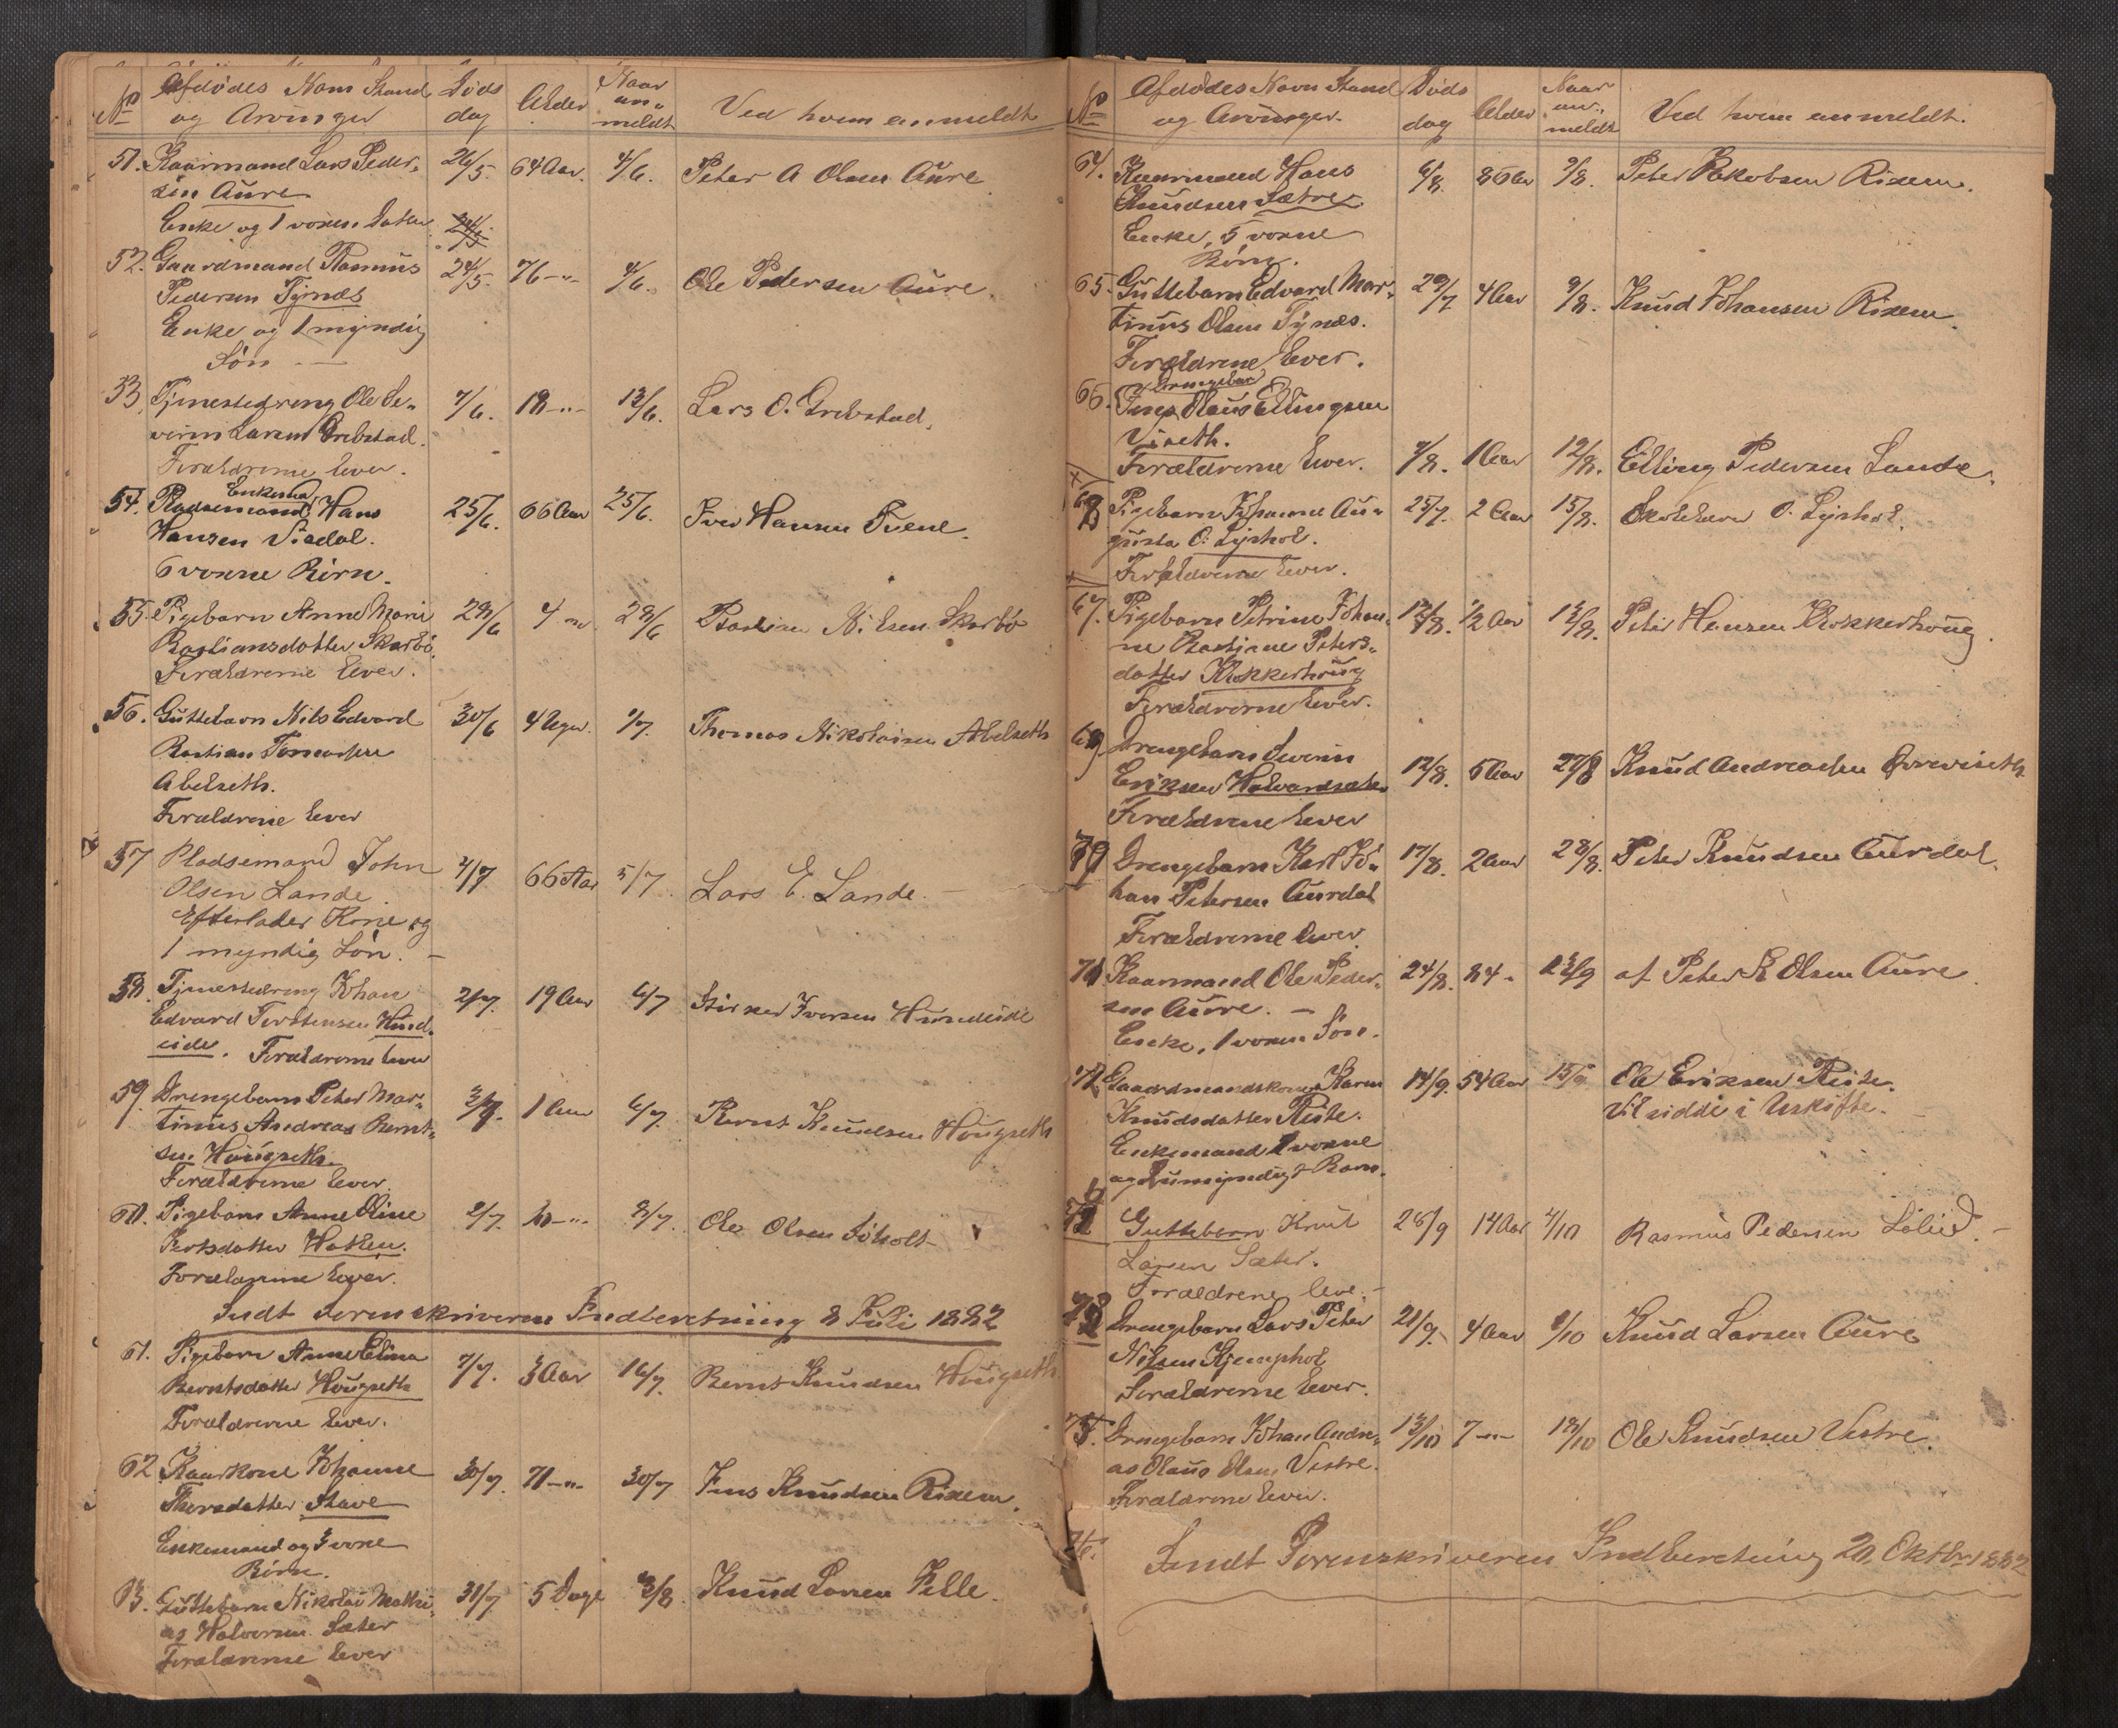 No Afdødes Navn Stand og Arvinger Døds dag Alder Naar anmeldt Ved hvem anmeldt
51. Kaarmand Lars Peder- 26/5. 64 Aar. 4/6. Peter A Olsen Aure
sen Aure
Enke og 1 voxen Datter 24/5
52. Gaardmand Rasmus 24/5. 76 -"- 4/6. Ole Pedersen Aure.
Pedersen Tynes
Enke og 1 myndig
Søn —
53. Tjenestedreng Ole Se- 7/6. 18 -"- 13/6. Lars O. Grebstad.
verin Larsen Grebstad.
Forældrene lever.
Enkema
54. Pladsemand Hans 25/6. 66 Aar 25/6. Iver Hansen
Hansen Visdal.
6 voxne Børn.
55. Pigebarn Anne Marie 28/6 4 -"- 28/6 Bastian Nilsen Skarbø
Bastiansdatter Skarbø.
Forældrene lever.
56. Guttebarn Nils Edvard 30/6 4 Uger. 1/7. Thomas Nikolaisen Abelseth
Bastian Tomassen
Abelseth.
Forældrene lever
57 Pladsemand John 2/7 66 Aar 5/7. Lars E. Lande. —
Olsen Lande.
Efterlader Kone og
1 myndig Søn. —
58. Tjenestedreng Johan 2/7. 19 Aar 6/7 Iversen Hundeide
Edvard Torstensen Hund-
eide. Forældrene lever
59. Drengebarn Peter Mar- 3/7. 1 Aar 6/7. Bernt Knudsen Hougseth
tinus Andreas Bernt-
sen Hougseth.
Forældrene lever.
60. Pigebarn Anne Oline 2/7. -"- 8/7. Ole Olsen Søholt
Hatlen.
Forældrene lever.
Sendt Sorenskriveren Indberetning 8 Juli 1882
61. Pigebarn Anne Elina 7/7. 3 Aar 16/7. Bernt Knudsen Hougseth
Berntsdatter Hougseth
Forældrene lever.
62 Kaarkone Johanne 30/7. 71 -"- 30/7 Jens Knudsen Rixem.
Thorsdatter Stave
Enkemand og 3 voxne
Børn.
63. Guttebarn Nikolai Mathi- 31/7 5 Dage 3/8. Knud Larsen
as Halvorsen Sæter
Forældrene lever
No Afdødes Navn Stand og Arvinger. Døds dag Alder Naar anmeldt Ved hvem anmeldt.
64. Kaarmand Hans 6/8. 80 Aar 9/8. Peter Jakobsen Rixem.
Knudsen Sætre
Enke, 5 voxne
Børn.
65. Guttebarn Edvard Mar- 29/7 4 Aar 9/8. Knud Johansen Rixem.
tinus Olsen Tynes.
Forældrene lever.
Drengebar
66. Jens Olaus Ellingsen
Viseth.
Forældrene lever. 7/8. 1 Aar 12/8. Elling Pedersen Lande.
68 Pigebarn Johanne Au- 25/7. 2 Aar 15/8. Skolelærer O. Lyshol.
gusta O. Lyshol.
Forældrene lever.
67. Pigebarn Petrine Johan- 12/8. 1/2 Aar 13/8. Peter Hansen Klokkerhoug.
ne Bastiane Peters-
datter Klokkerhoug
Forældrene lever.
69 Drengebarn Severin
Eriksen 12/8. 5 Aar 27/8 Knud Andreassen
Forældrene lever
70 Drengebarn Karl Jo- 17/8. 2 Aar 28/8. Peter Knudsen Aurdal.
han Petersen Aurdal
Forældrene lever
71 Kaarmand Ole Peder- 24/8. 84 - 13/9 af Peter Olsen Aure
sen Aure. —
Enke, 1 voxen Søn.
72. Gaardmandskone Karen 14/9. 54 Aar 15/9. Ole Eriksen Riste.
Knudsdatter Riste. Vil sidde i Uskifte. —
Enkemand voxne
og umyndigt Barn.
Guttebarn Knut 26/9 14 Aar 4/10 Rasmus Pedersen Lølid. —
Larsen Sæter.
Forældrene leve. —
Drengebarn Lars Peter 21/9. 4 Aar 8/10 Knud Larsen Aure
Nilsen Kjemphol
Forældrene lever.
75. Drengebarn Johan Andre- 13/10 7 -"- 18/10 Ole Knudsen Vestre.
as Olaus Olsen Vestre.
Forældrene lever.
76. Sendt Sorenskriveren Indberetning 20. Oktbr 1882